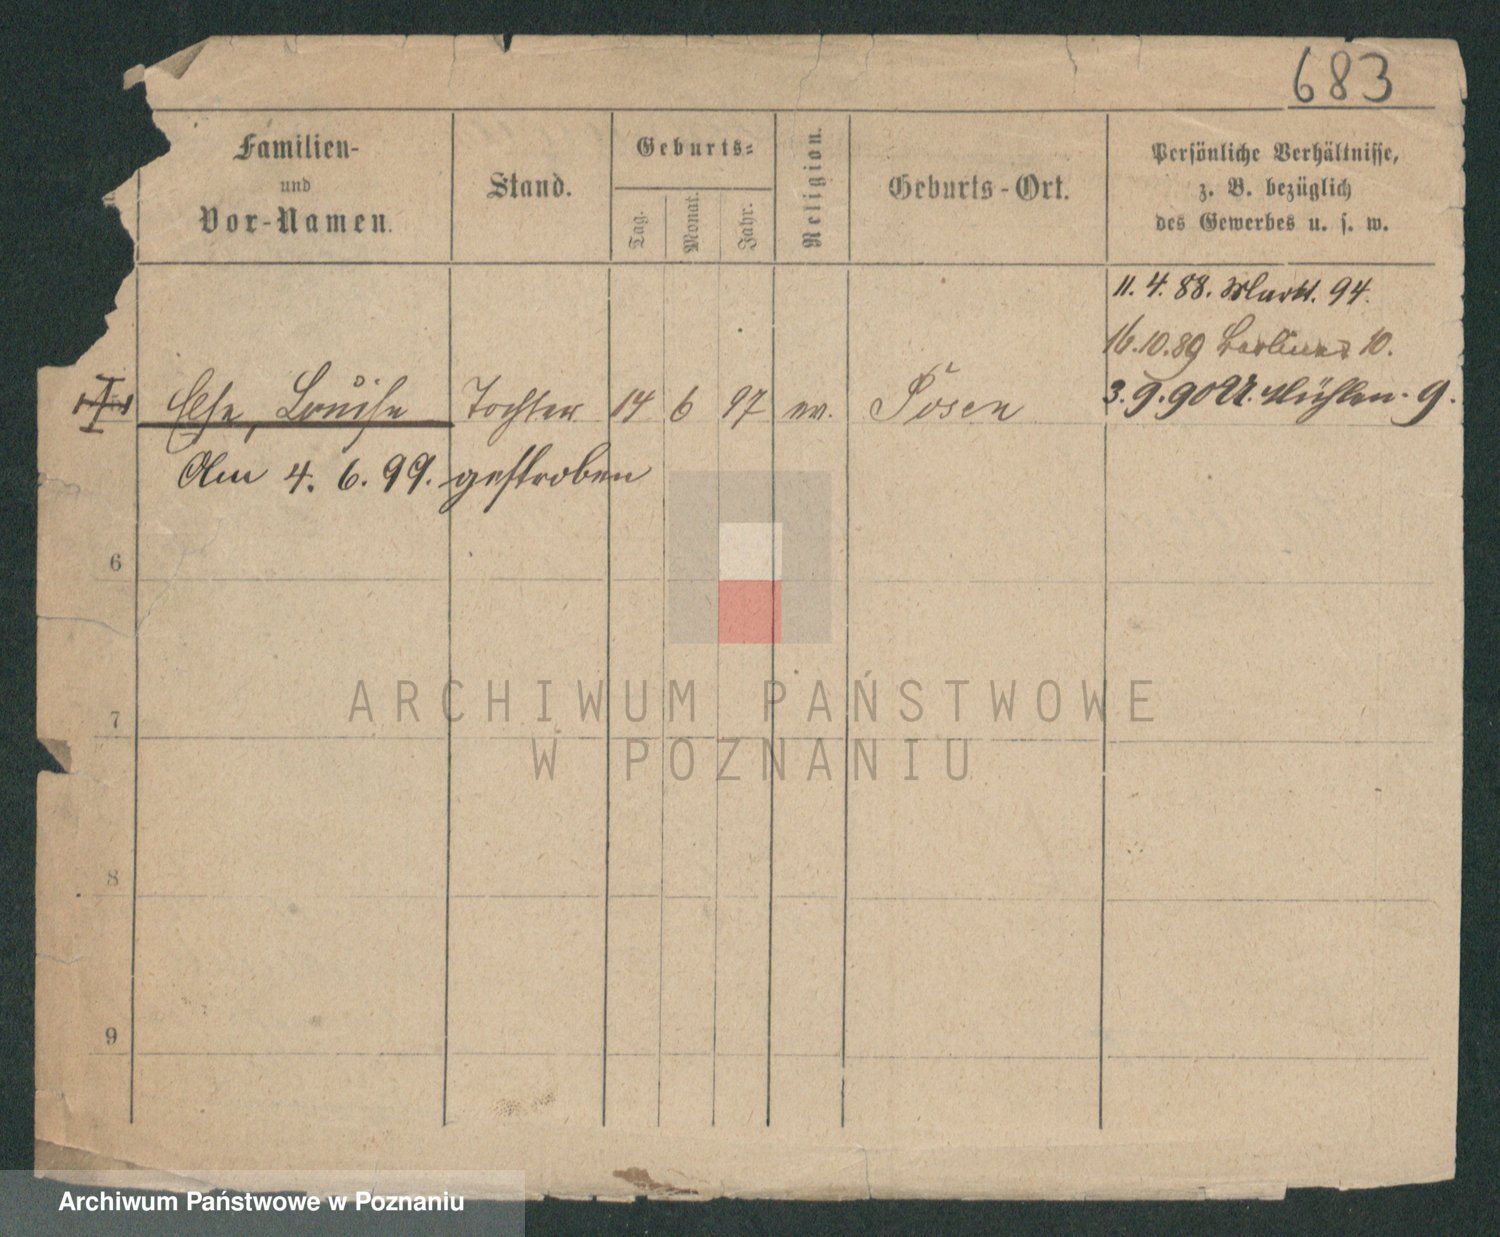 683
Familien-
und
Vor-Namen.
Stand.
Geburts-
Tag.
Monat.
Jahr.
Religion.
Geburts-Ort.
Persönliche Verhältnisse,
z. B. bezüglich
des Gewerbes u. s. w.
11. 4. 88. Markt. 94.
16.10.89 Berliner 10.
3. 9. 90 U. Mühlen. 9.
Else, Louise Tochter 14 6 97 ev. Posen
Am 4. 6. 99. gestroben
6
7
8
9
ARCHIWUM PAŃSTWOWE
W POZNANIU
Archiwum Państwowe w Poznaniu